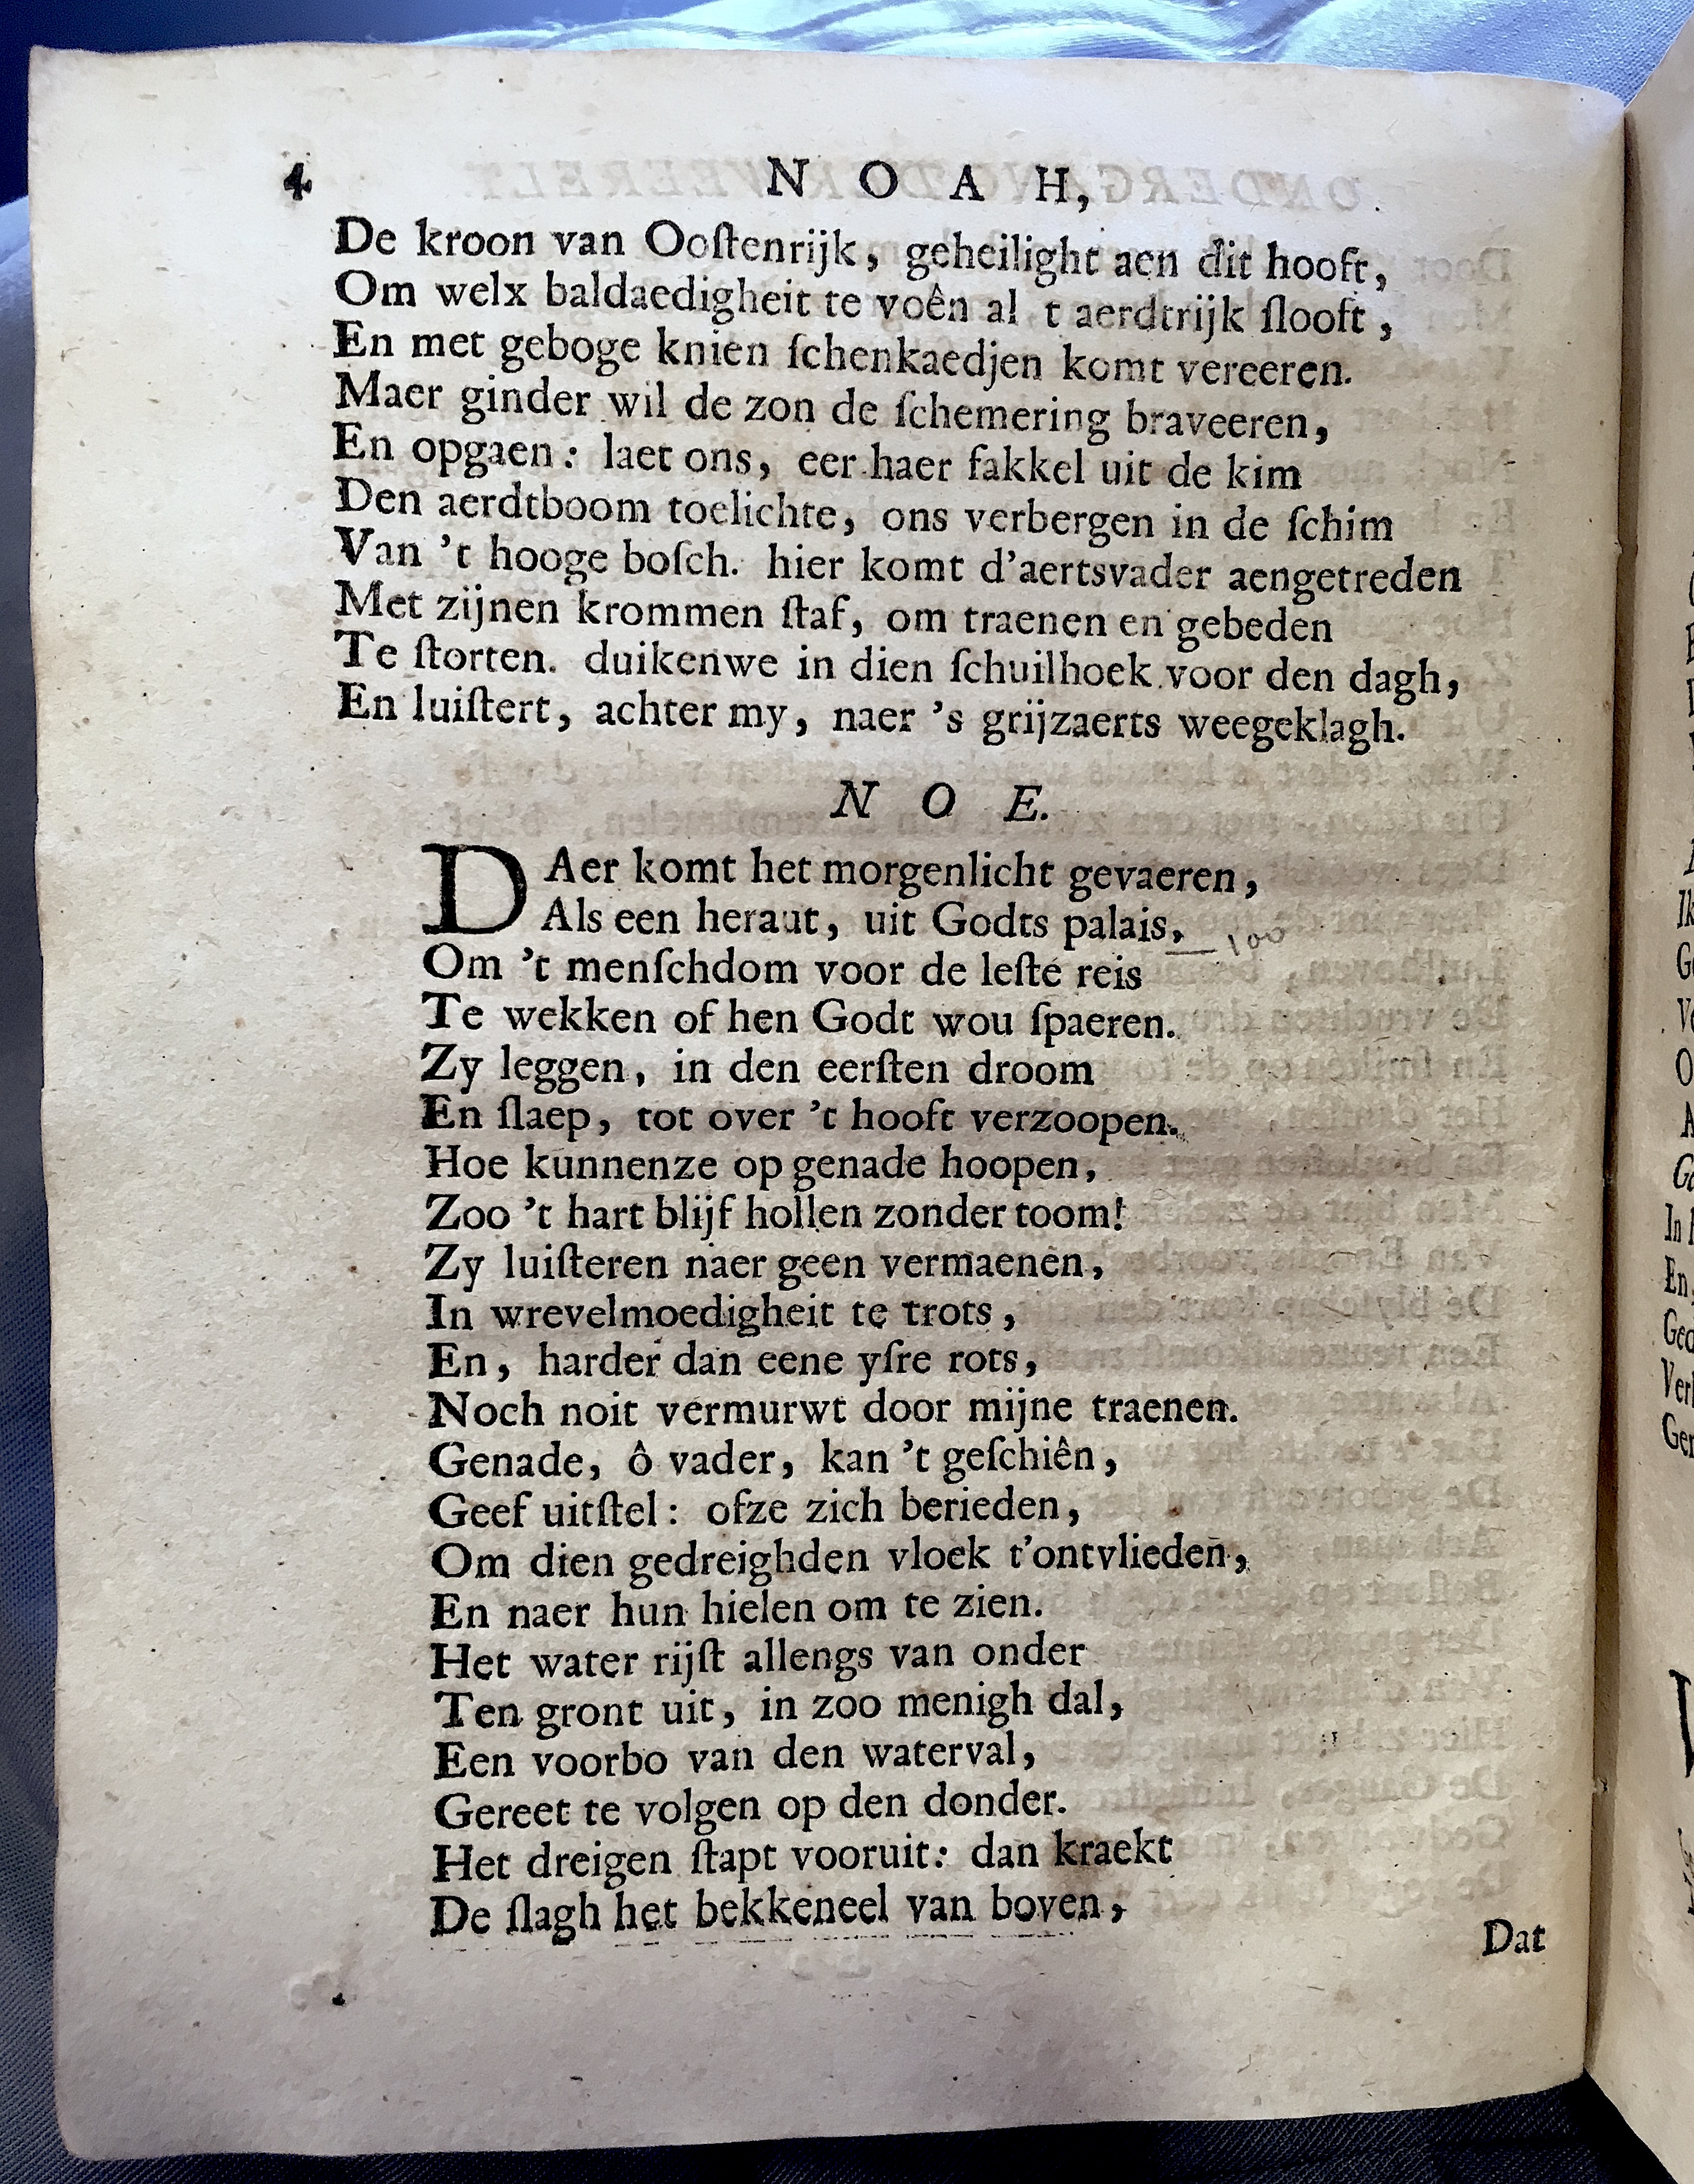 4 NOAH,
De kroon van Ooſtenrijk, geheilight aen dit hooft,
Om welx baldaedigheit te voên al t aerdtrijk ſlooft,
En met geboge knien ſchenkaedjen komt vereeren.
Maer ginder wil de zon de ſchemering braveeren,
En opgaen: laet ons, eer haer fakkel uit de kim
Den aerdtboom toelichte, ons verbergen in de ſchim
Van 't hooge boſch. hier komt d'aertsvader aengetreden
Met zijnen krommen ſtaf, om traenen en gebeden
Te ſtorten. duikenwe in dien ſchuilhoek voor den dagh,
En luiſtert, achter my, naer 's grijzaerts weegeklagh.
NOE.
DAer komt het morgenlicht gevaeren,
Als een heraut, uit Godts palais, — 100
Om 't menſchdom voor de leſte reis
Te wekken of hen Godt wou ſpaeren.
Zy leggen, in den eerſten droom
En ſlaep, tot over 't hooft verzoopen.
Hoe kunnenze op genade hoopen,
Zoo 't hart blijf hollen zonder toom!
Zy luiſteren naer geen vermaenen,
In wrevelmoedigheit te trots,
En, harder dan eene yſre rots,
Noch noit vermurwt door mijne traenen.
Genade, ô vader, kan 't geſchiên,
Geef uitſtel: ofze zich berieden,
Om dien gedreighden vloek t'ontvlieden,
En naer hun hielen om te zien.
Het water rijſt allengs van onder
Ten gront uit, in zoo menigh dal,
Een voorbo van den waterval,
Gereet te volgen op den donder.
Het dreigen ſtapt vooruit: dan kraekt
De ſlagh het bekkeneel van boven,
Dat